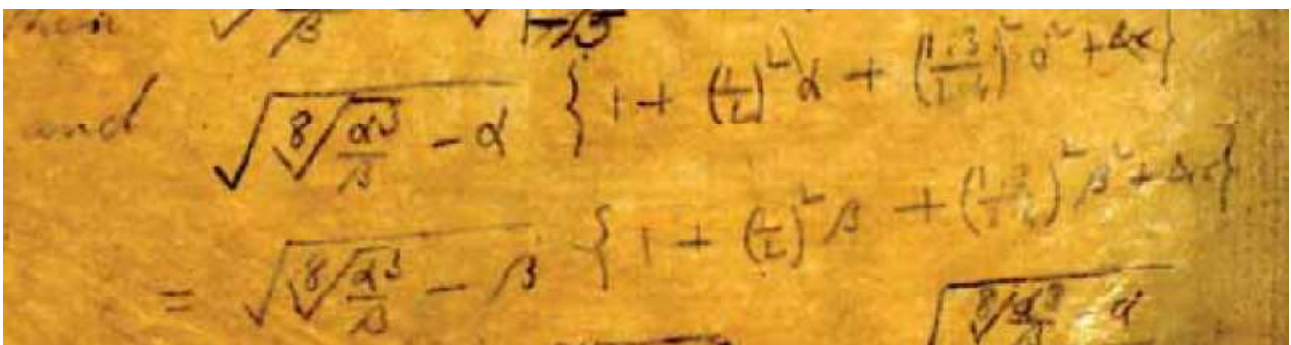 then
and √(⁸√(α³/β) − α) {1 + (1/2)²α + (1·3/2·4)²α² + &c}
= √(⁸√(α³/β) − β) {1 + (1/2)²β + (1·3/2·4)²β² + &c}